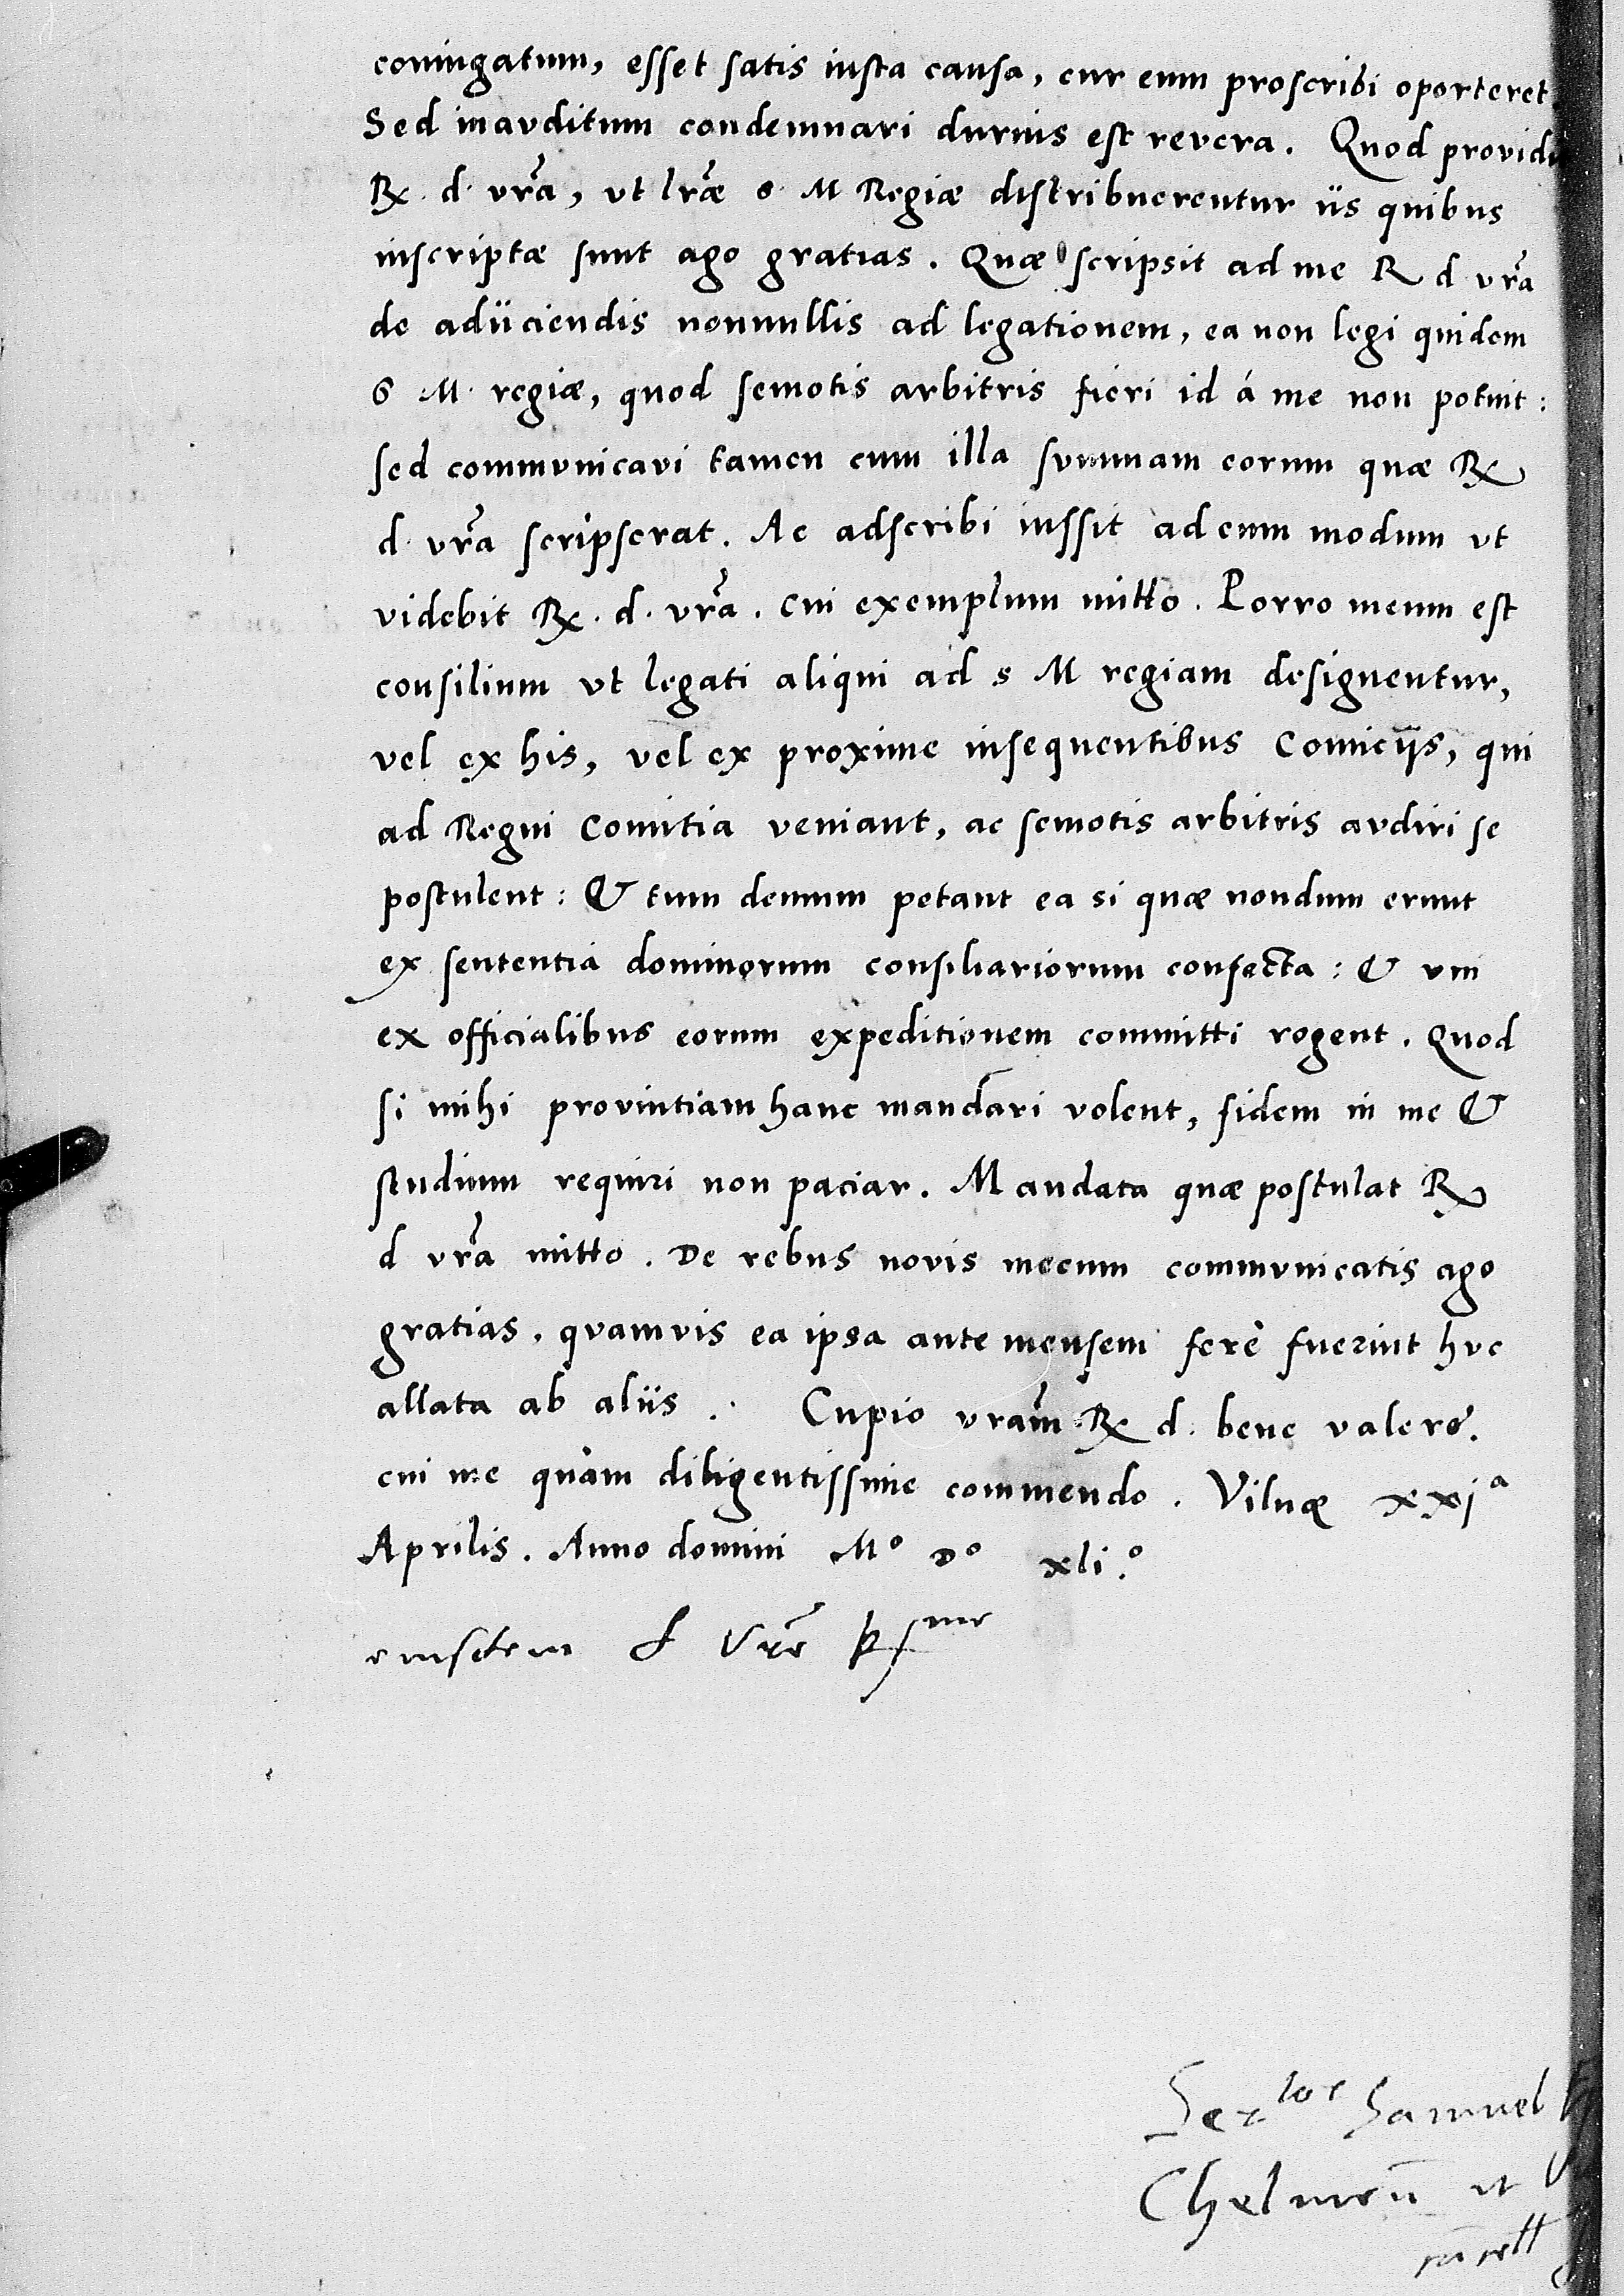 coniugatum, esset satis iusta causa, cur eum proscribi oporteret
Sed inauditum condemnari durius est revera. Quod providit
Rx. d. vra, vt lræ s. M Regiæ distribuerentur iis quibus
inscriptæ sunt ago gratias. Quæ scripsit ad me R d vra
de adiiciendis nonnullis ad legationem, ea non legi quidem
S. M. regiæ, quod semotis arbitris fieri id á me non potuit:
sed commvnicavi tamen cum illa svmmam eorum quæ Rx
d. vra scripserat. Ac adscribi iussit ad eum modum vt
videbit Rx. d. vra. cui exemplum mitto. Porro meum est
consilium vt legati aliqui ad s M regiam designentur,
vel ex his, vel ex proxime insequentibus Comicijs, qui
ad Regni Comitia veniant, ac semotis arbitris avdiri se
postulent: & tum demum petant ea si quæ nondum erunt
ex sententia dominorum consiliariorum confecta: & vni
ex officialibus eorum expeditionem committi rogent. Quod
si mihi provintiam hanc mandari volent, fidem in me &
studium requiri non paciar. Mandata quæ postulat Rx
d vra mitto. De rebus novis mecum commvnicatis ago
gratias. qvamvis ea ipsa ante mensem ferè fuerint hvc
allata ab aliis . Cupio vram Rx d. bene valere.
cui me quàm diligentissime commendo. Vilnæ xxja
Aprilis. Anno domini Mo Do xli.o
eiusdem d Vre
Samuel
Chelmen et